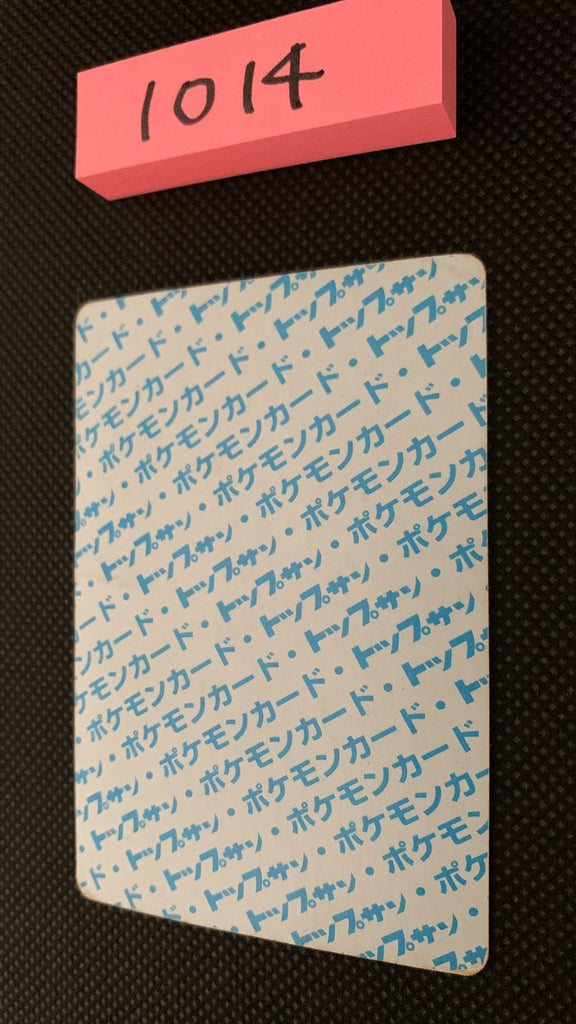 1014
ド・
カード・トッ
モンカード・トップ
ポケモンカード・トップサン
・ポケモンカード・トップサン
サン・ポケモンカード・トップサン
トップサン・ポケモンカード・トップ
・トップサン・ポケモンカード・ト
ド・トップサン・ポケモンカード・
カード・トップサン・ポケモンカード
ンカード・トップサン・ポケモンカ
ケモンカード・トップサン・ポケモ
ポケモンカード・トップサン・ポ
・ポケモンカード・トップサン・
サン・ポケモンカード・トップサ
ップサン・ポケモンカード・ト
・トップサン・ポケモンカード
ド・トップサン・ポケモンカー
・トップサン・ポケモ
トップサン・ポ
ップサン・
トップ